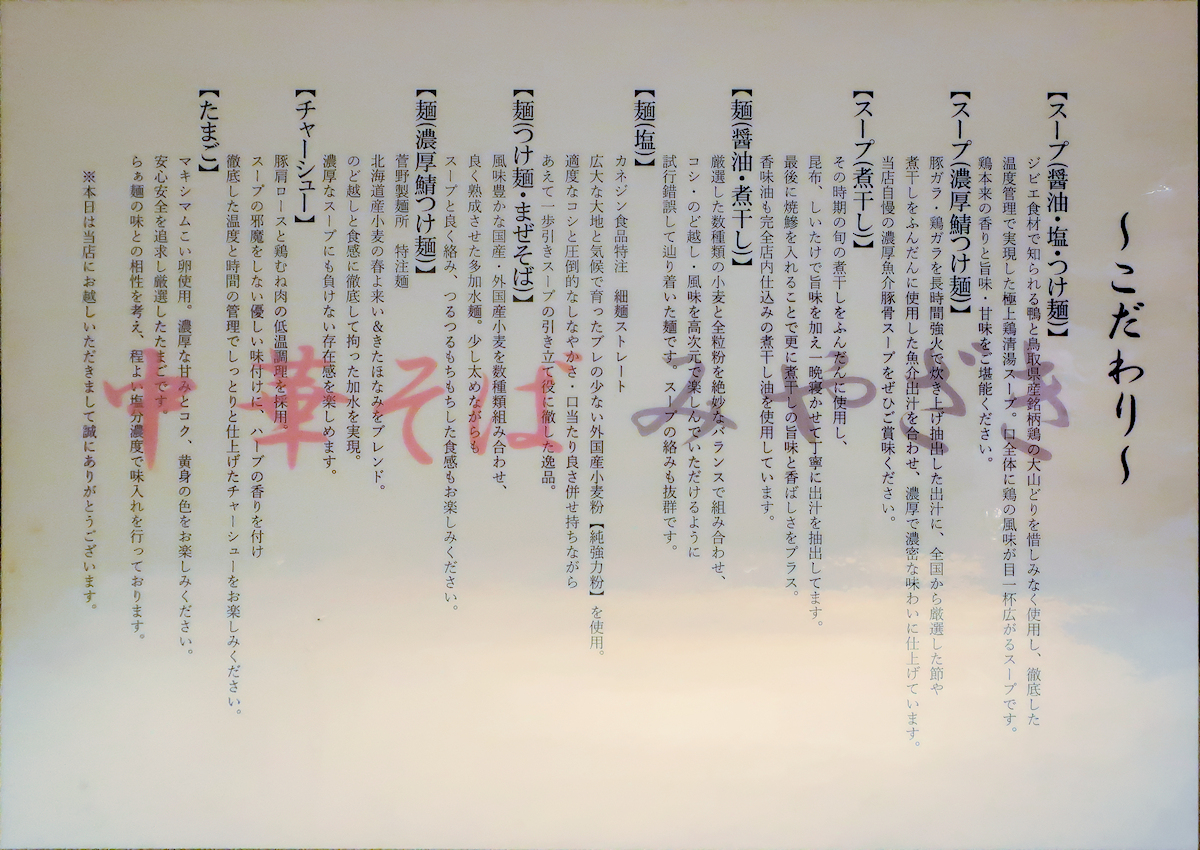 ～こだわり～
【スープ(醤油・塩・つけ麺)】
ジビエ食材で知られる鴨と鳥取県産銘柄鶏の大山どりを惜しみなく使用し、徹底した
温度管理で実現した極上鶏清湯スープ。口全体に鶏の風味が目一杯広がるスープです。
鶏本来の香りと旨味・甘味をご堪能ください。
【スープ(濃厚鯖つけ麺)】
豚ガラ・鶏ガラを長時間強火で炊き上げ抽出した出汁に、全国から厳選した節や
煮干しをふんだんに使用した魚介出汁を合わせ、濃厚で濃密な味わいに仕上げています。
当店自慢の濃厚魚介豚骨スープをぜひご賞味ください。
【スープ(煮干し)】
その時期の旬の煮干しをふんだんに使用し、
昆布、しいたけで旨味を加え一晩寝かせて丁寧に出汁を抽出してます。
最後に焼鯵を入れることで更に煮干しの旨味と香ばしさをプラス。
香味油も完全店内仕込みの煮干し油を使用しています。
【麺(醤油・煮干し)】
厳選した数種類の小麦と全粒粉を絶妙なバランスで組み合わせ、
コシ・のど越し・風味を高次元で楽しんでいただけるように
試行錯誤して辿り着いた麺です。スープの絡みも抜群です。
【麺(塩)】
カネジン食品特注　細麺ストレート
広大な大地と気候で育ったブレの少ない外国産小麦粉【純強力粉】を使用。
適度なコシと圧倒的なしなやかさ・口当たり良さ併せ持ちながら
あえて一歩引きスープの引き立て役に徹した逸品。
【麺(つけ麺・まぜそば)】
風味豊かな国産・外国産小麦を数種類組み合わせ、
良く熟成させた多加水麺。少し太めながらも
スープと良く絡み、つるつるもちもちした食感もお楽しみください。
【麺(濃厚鯖つけ麺)】
菅野製麺所　特注麺
北海道産小麦の春よ来い＆きたほなみをブレンド。
のど越しと食感に徹底して拘った加水を実現。
濃厚なスープにも負けない存在感を楽しめます。
【チャーシュー】
豚肩ロースと鶏むね肉の低温調理を採用。
スープの邪魔をしない優しい味付けに、ハーブの香りを付け
徹底した温度と時間の管理でしっとりと仕上げたチャーシューをお楽しみください。
【たまご】
マキシマムこい卵使用。濃厚な甘みとコク、黄身の色をお楽しみください。
安心安全を追求し厳選したたまごです。
らぁ麺の味との相性を考え、程よい塩分濃度で味入れを行っております。
※本日は当店にお越しいただきまして誠にありがとうございます。
中華そば みやざき